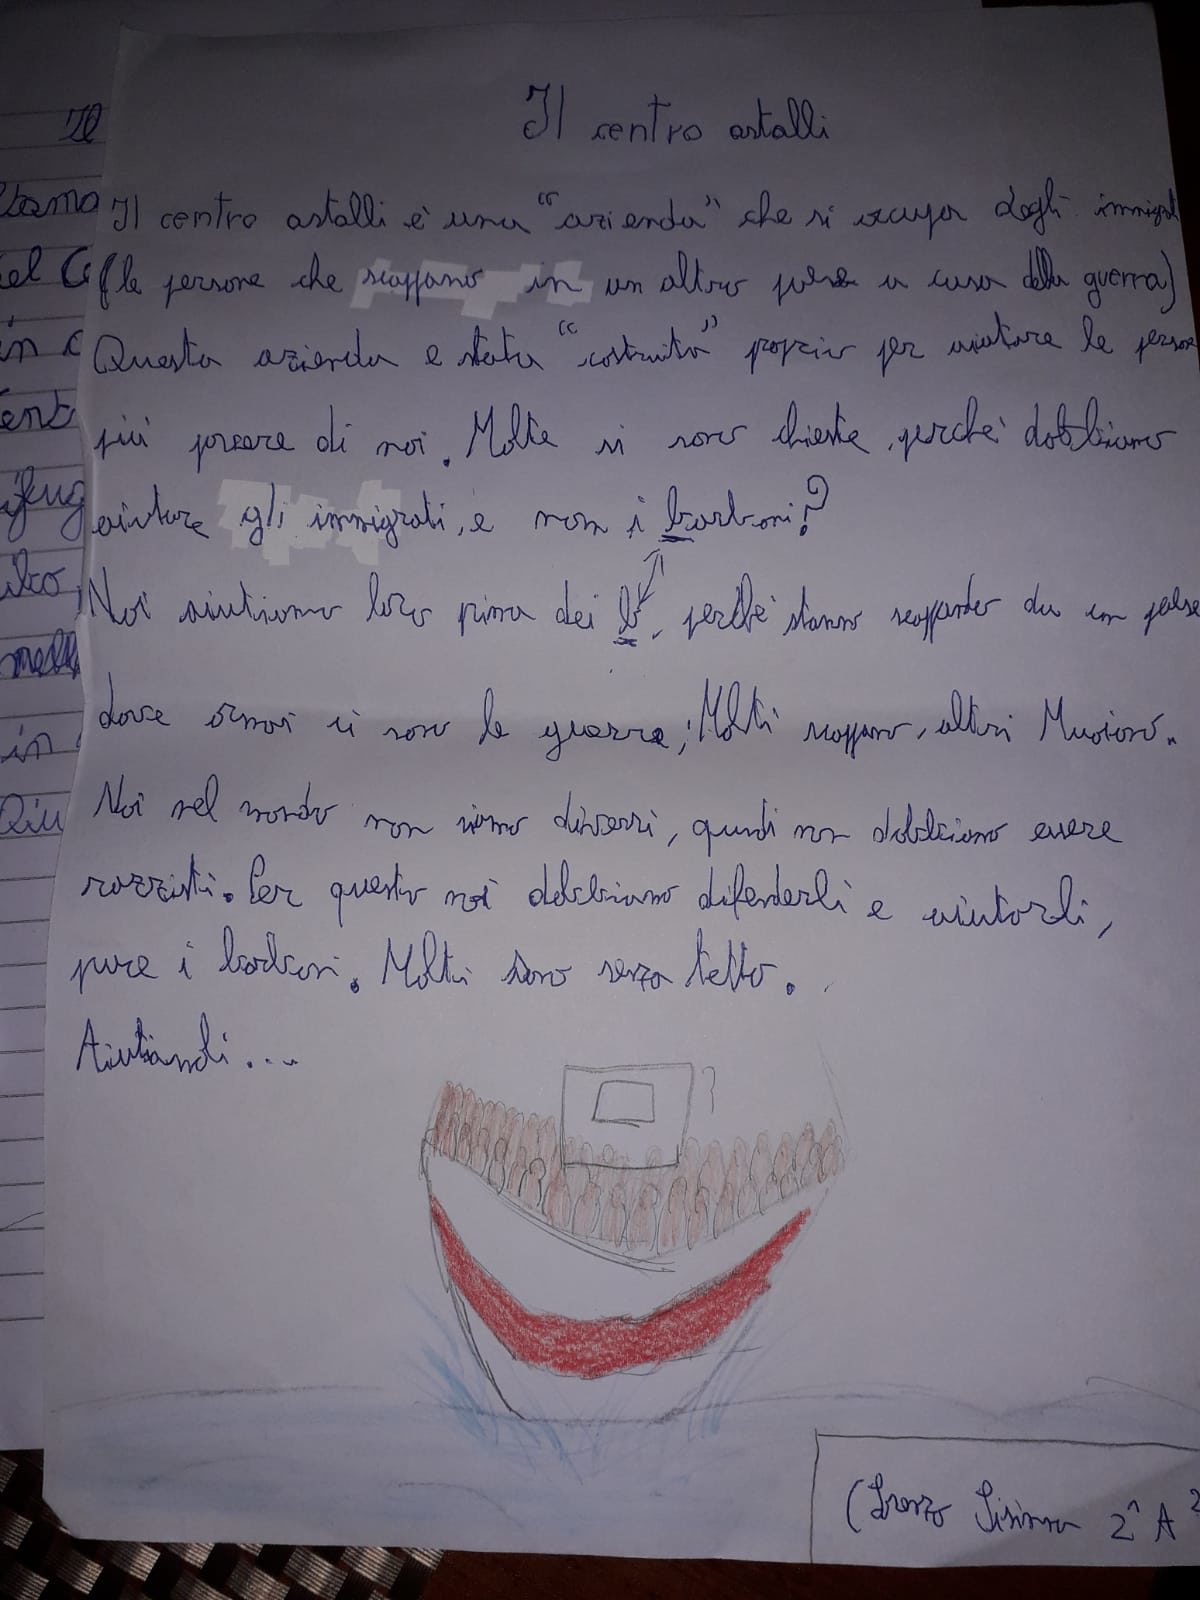 Il centro astalli
Il centro astalli è una “azienda” che si occupa degli immigrati
(le persone che scappano in un altro paese a causa della guerra)
Questa azienda e stata “costruita” proprio per aiutare le persone
più povere di noi. Molte si sono chieste, perchè dobbiamo
aiutare gli immigrati, e non i barboni?
Noi aiutiamo loro prima dei b, perchè stanno scappando da un paese
dove ormai ci sono le guerre; Molti scappano, altri Muoiono.
Noi nel mondo non siamo diversi, quindi non dobbiamo essere
razzisti. Per questo noi dobbiamo difenderli e aiutarli,
pure i barboni. Molti sono senza tetto.
Aiutiamoli...
(Lorenzo 2^A
Il
el C
in
ent
ifug
in
Qiu